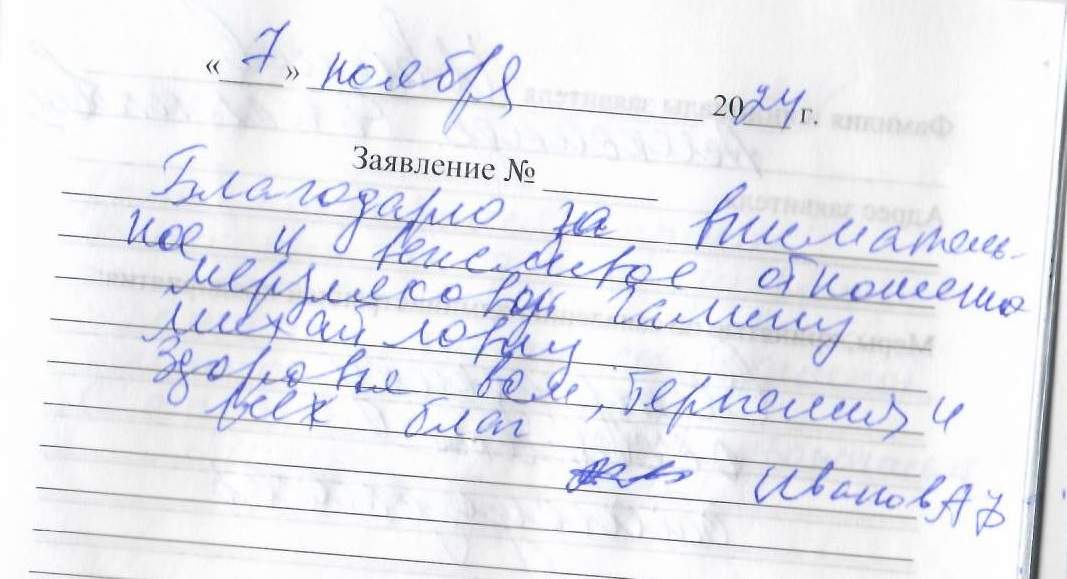 « 7 » ноября 2024 г.
Заявление №
Благодарю за вниматель-
ное и вежливое отношение
Мерзлякову Галину
Михайловну
Здоровья вам, терпения и
всех благ
Иванов А